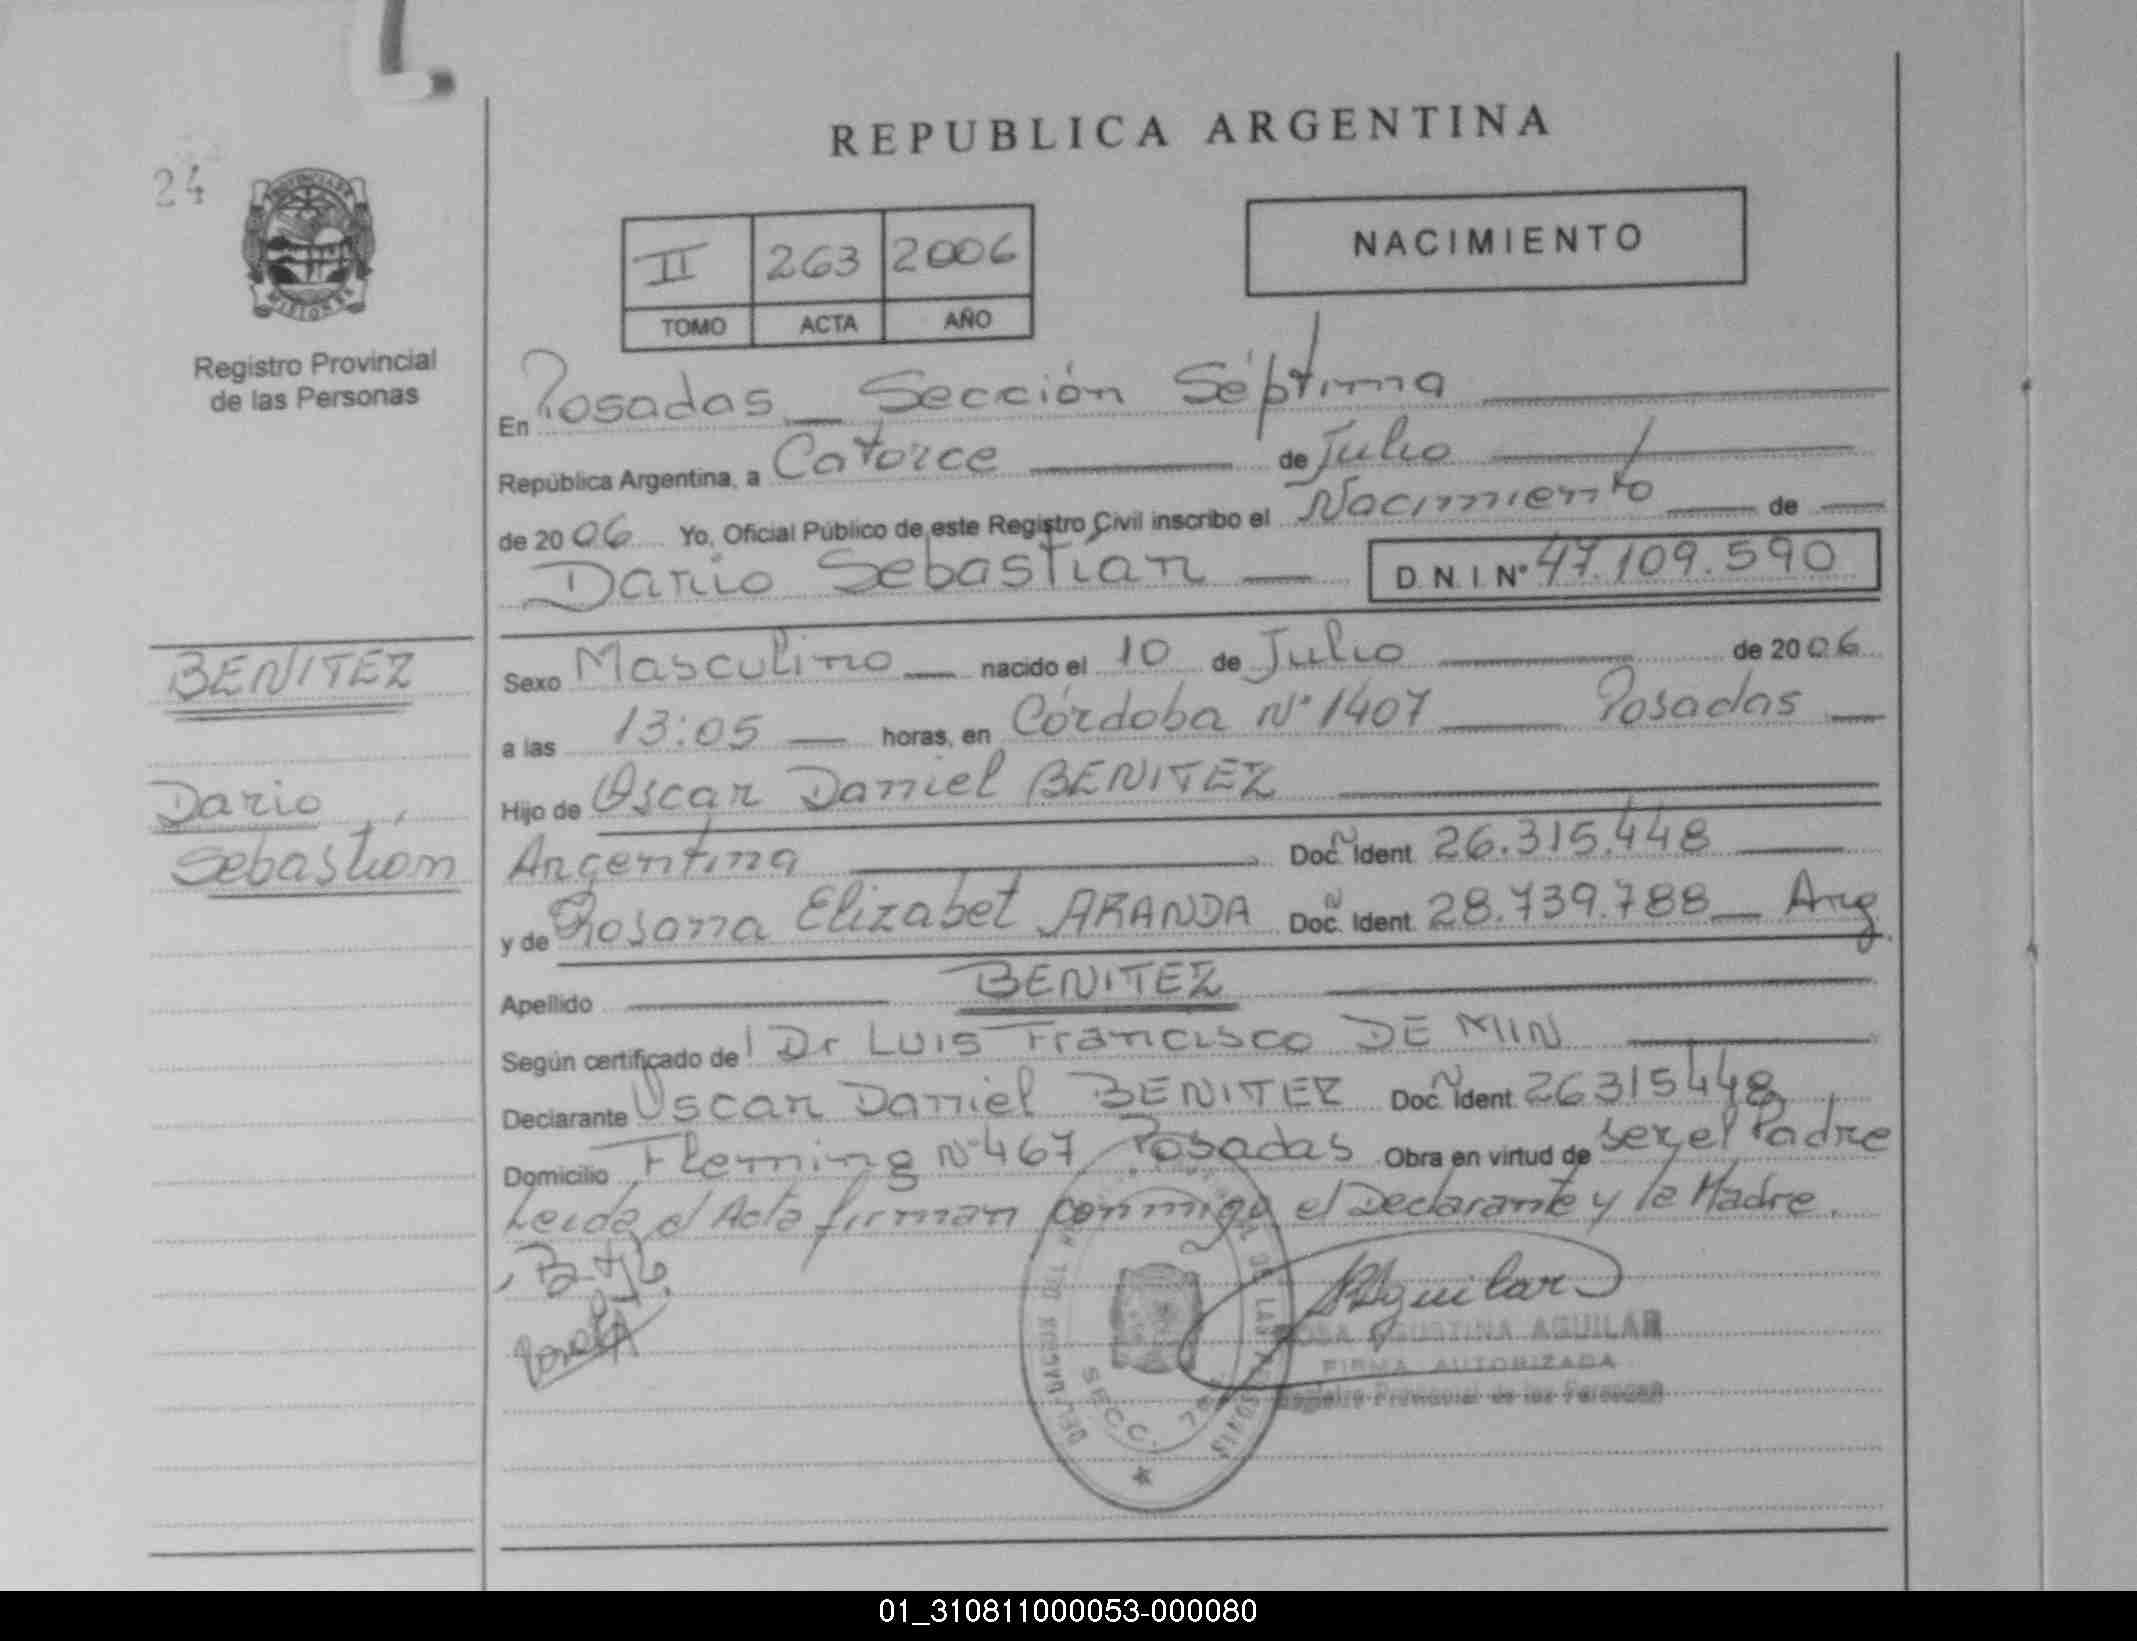 24
REPUBLICA ARGENTINA
II 263 2006
TOMO ACTA AÑO
NACIMIENTO
Registro Provincial
de las Personas
En Posadas Sección Séptima
República Argentina, a Catorce de Julio
de 2006 Yo, Oficial Público de este Registro Civil inscribo el Nacimiento de
Dario Sebastian D.N.I Nº 47.109.590
BENITEZ
Dario
Sebastian
Sexo Masculino nacido el 10 de Julio de 2006
a las 13:05 horas, en Córdoba Nº 1407 Posadas
Hijo de Oscar Daniel BENITEZ
Argentina Doc. Ident. 26.315.448
y de Rosana Elizabet ARANDA Doc. Ident. 28.739.788 Arg.
Apellido BENITEZ
Según certificado de Dr Luis Francisco DE MIN
Declarante Oscar Daniel BENITEZ Doc. Ident. 26315448
Domicilio Fleming Nº 467 Posadas Obra en virtud de ser el Padre
Leida el Acta firman conmigo el Declarante y la Madre.
Aguilar
ROSA AGUSTINA AGUILAR
FIRMA AUTORIZADA
Registro Provincial de las Personas
SECC. 7
01_310811000053-000080